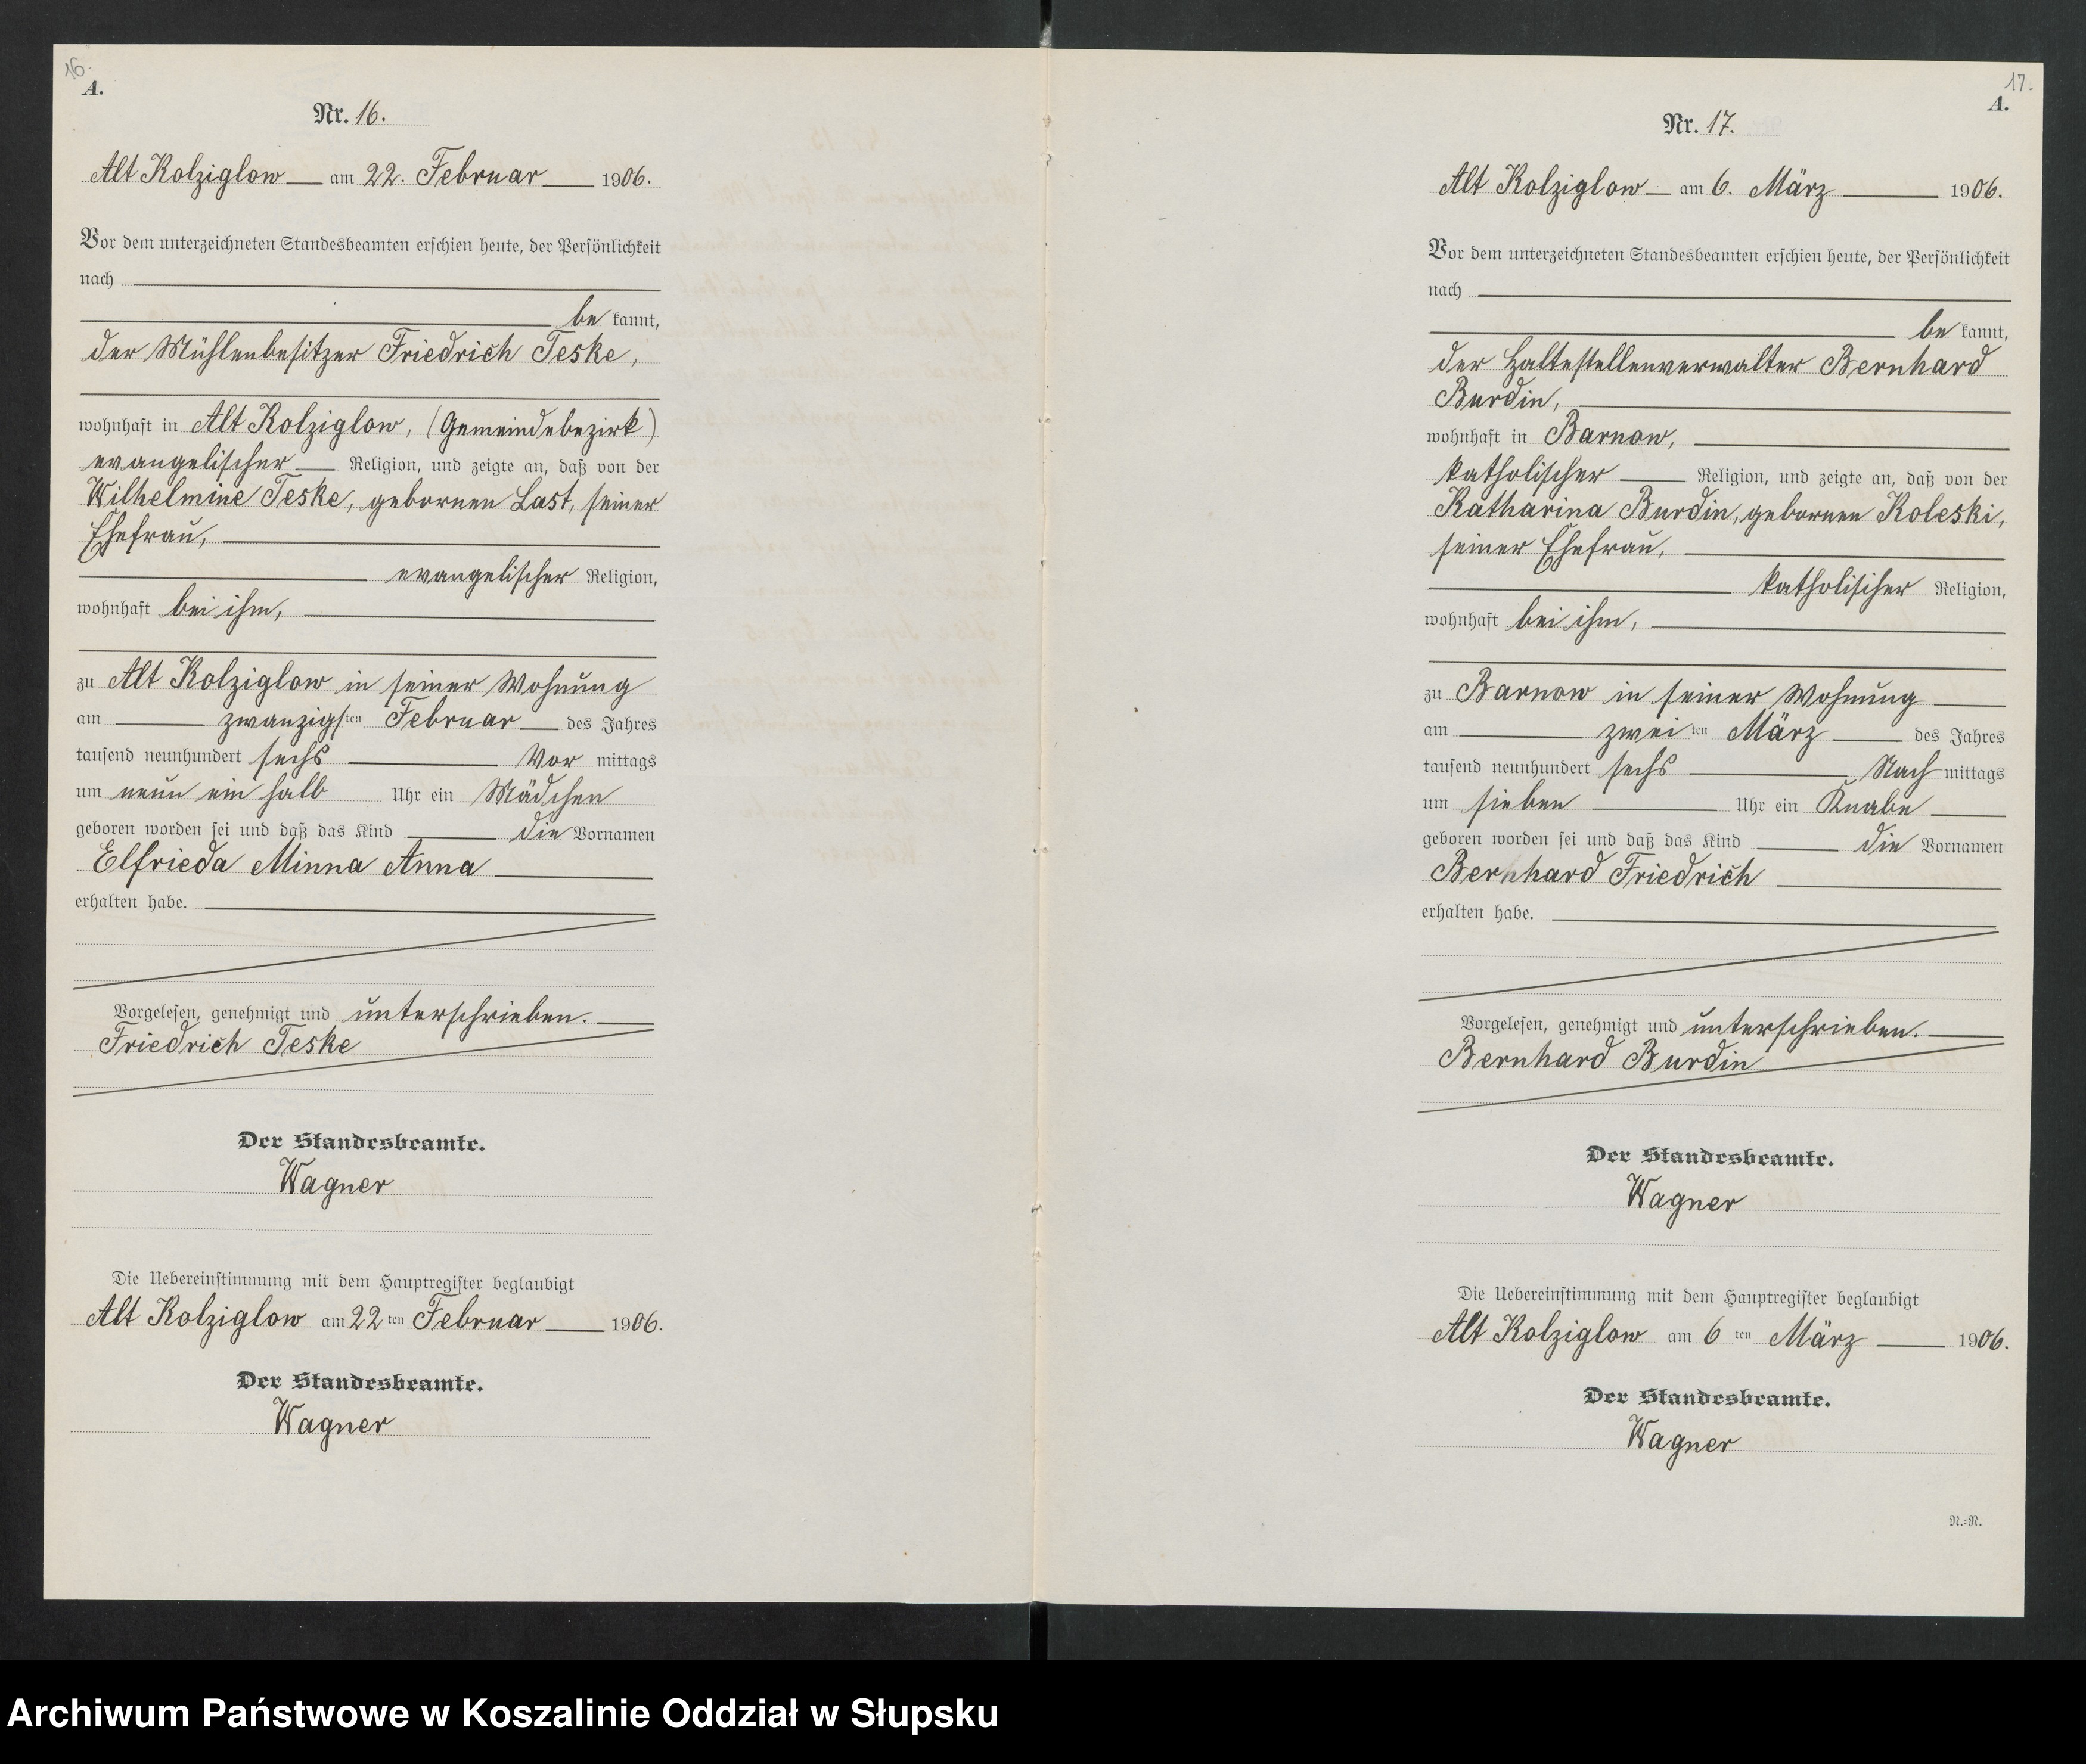 16.
A.
Nr. 16.
Alt Kolziglow am 22. Februar 1906.
Vor dem unterzeichneten Standesbeamten erschien heute, der Persönlichkeit
nach
be kannt,
der Mühlenbesitzer Friedrich Teske,
wohnhaft in Alt Kolziglow, (Gemeindebezirk)
evangelischer Religion, und zeigte an, daß von der
Wilhelmine Teske, gebornen Last, seiner
Ehefrau,
evangelischer Religion,
wohnhaft bei ihm,
zu Alt Kolziglow in seiner Wohnung
am zwanzigsten Februar des Jahres
tausend neunhundert sechs Vor mittags
um neun ein halb Uhr ein Mädchen
geboren worden sei und daß das Kind die Vornamen
Elfrieda Minna Anna
erhalten habe.
Vorgelesen, genehmigt und unterschrieben.
Friedrich Teske
Der Standesbeamte.
Wagner
Die Uebereinstimmung mit dem Hauptregister beglaubigt
Alt Kolziglow am 22 ten Februar 1906.
Der Standesbeamte.
Wagner
17.
A.
Nr. 17.
Alt Kolziglow am 6. März 1906.
Vor dem unterzeichneten Standesbeamten erschien heute, der Persönlichkeit
nach
be kannt,
der Haltestellenverwalter Bernhard
Burdin,
wohnhaft in Barnow,
katholischer Religion, und zeigte an, daß von der
Katharina Burdin, gebornen Koleski,
seiner Ehefrau,
katholischer Religion,
wohnhaft bei ihm,
zu Barnow in seiner Wohnung
am zwei ten März des Jahres
tausend neunhundert sechs Nach mittags
um sieben Uhr ein Knabe
geboren worden sei und daß das Kind die Vornamen
Bernhard Friedrich
erhalten habe.
Vorgelesen, genehmigt und unterschrieben.
Bernhard Burdin
Der Standesbeamte.
Wagner
Die Uebereinstimmung mit dem Hauptregister beglaubigt
Alt Kolziglow am 6 ten März 1906.
Der Standesbeamte.
Wagner
N.=N.
Archiwum Państwowe w Koszalinie Oddział w Słupsku